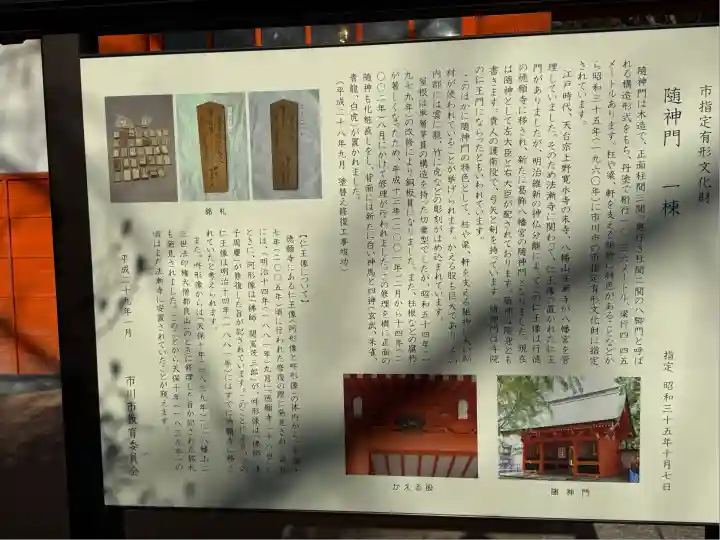 市指定有形文化財
随神門 一棟
指定 昭和三十五年十月七日
随神門は木造で、正面柱間三間、奥行き柱間二間の八脚門と呼ば
れる構造形式をもち、丹塗で桁行
メートルあります。柱や梁、軒を支える
があることなどか
ら昭和三十五年(一九六〇年)に市川市の市指定有形文化財に指定
されています。
江戸時代、天台宗上野寛永寺の末寺、八幡山法漸寺が八幡宮を管
理していました。そのため法漸寺に関わって、仁王尊の置かれた仁王
門がありましたが、明治維新の神仏分離によって、この仁王像は行徳
の徳願寺に移され、新たに葛飾八幡宮の随神門となりました。現在
は随神として左大臣と右大臣が配されております。随神は随身とも
書きます。貴人の護衛役で、弓矢と剣を持っています。随神門は寺院
の仁王門にならったともいわれています。
このほかに随神門の特徴として、柱や梁、軒を支える
材が使われていることが挙げられます。かえる股も巨大であり、
内部には雲に龍、竹に虎などの彫刻がはめ込まれています。
屋根は単層茅葺の構造を持った切妻型でしたが、昭和五十四年(一
九七九年)の改修により銅板葺になりました。また、柱根などの腐朽
が著しくなったため、平成十三年(二〇〇一年)二月から十四年(二
〇〇二年)八月にかけて修理が行われました。この修理を機に正面の
随神も化粧直しをし、背面には新たに白い神馬と四神(玄武、朱雀、
青龍、白虎)が置かれました。
(平成二十八年九月 塗替え修復工事竣功)
銘札
【仁王像について】
徳願寺にある仁王像(阿形像と吽形像)の体内から、平成十
七年(二〇〇五年)頃に行われた修復の際に発見された
には、「明治十四年(一八八一年)九月に「徳願寺
ときに、阿形像は「佛師 関寓茂三郎」が、吽形像は「佛師
子周慶」が修復した旨が記されています。このことから、この
仁王像は明治十四年(一八八一年)にはすでに徳願寺に移さ
れていたと考えられます。
また、吽形像からは「天保十年(一八三九年)に「八幡山二十
三世法印権大僧都良山」のときに修理した旨が記された銘札
も発見されました。このことから天保十年(一八三九年)の
頃はまだ法漸寺に安置されていたことが窺えます。
平成二十九年一月
市川市教育委員会
かえる股
随神門